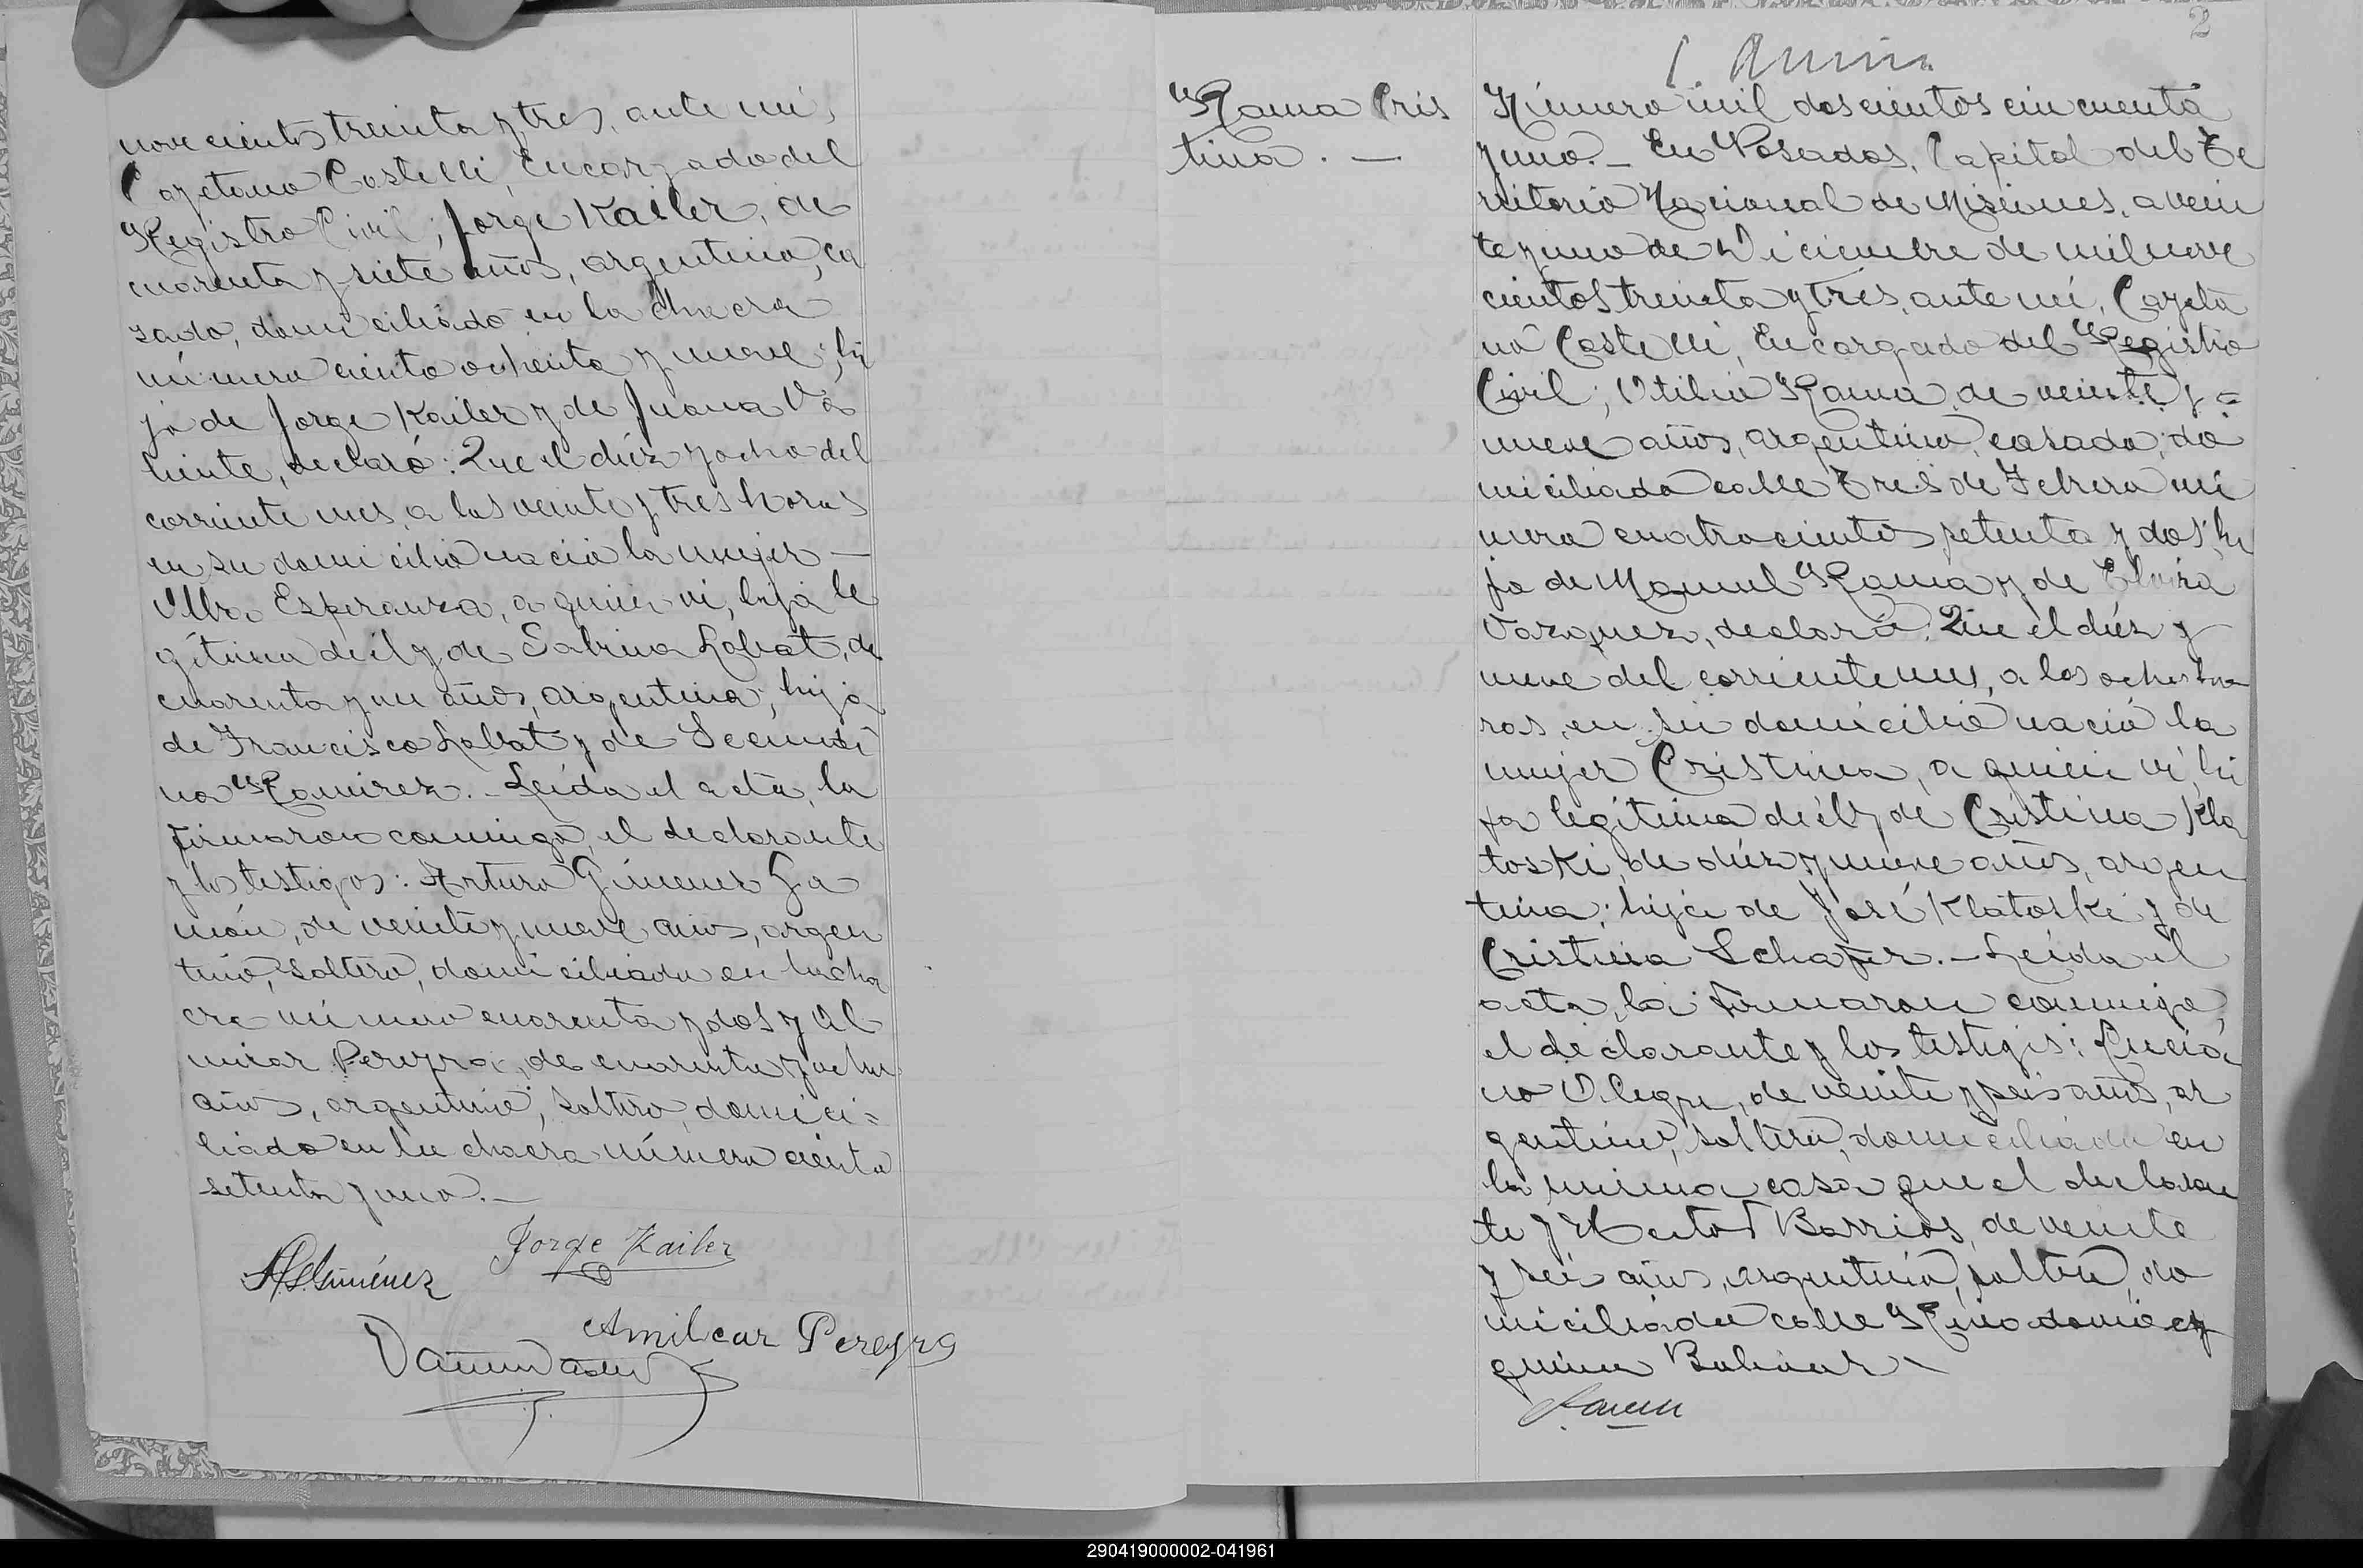 novecientos treinta y tres, ante mí,
Cayetano Castelli, Encargado del
Registro Civil; Jorge Kailer, de
cuarenta y siete años, argentino, ca
sado, domiciliado en la chacra
número ciento ochenta y nueve; hi
jo de Jorge Kailer y de Juana Va
liente, declaró: Que el diez y ocho del
corriente mes, a las veinte y tres horas
en su domicilio nació la mujer —
Esperanza, a quien vi, hija le
gítima de él y de Sabina Labat, de
cuarenta y un años, argentina; hija
de Francisco Labat y de Secundi
na Ramirez. - Leída el acta, la
firmaron conmigo, el declarante
y los testigos: Arturo Gimenez Ga
món, de veinte y nueve años, argen
tino, soltero, domiciliado en la cha
cra número cuarenta y dos y Al
micar Pereyra, de cuarenta y ocho
años, argentino, soltero, domici=
liado en la chacra número ciento
setenta y uno. —
Jorge Kailer
Giménez
Amilcar Pereyra
2
Rama Cris
tina. —
Número mil doscientos cincuenta
y uno. - En Posadas, Capital del Te
rritorio Nacional de Misiones, a vein
te y uno de Diciembre de mil nove
cientos treinta y tres, ante mí, Cayeta
no Castelli, Encargado del Registro
Civil; Otilio Rama, de veinte y =
nueve años, argentino, casado, do
miciliado calle Tres de Febrero nú
mero cuatrocientos setenta y dos; hi
jo de Manuel Rama y de Elvira
Vazquez, declaró: Que el diez y
nueve del corriente mes, a las ocho ho
ras, en su domicilio nació la
mujer Cristina, a quien vi, hi
ja legítima de él y de Cristina Kla
toski, de diez y nueve años, argen
tina; hija de José Klatoski y de
Cristina Schafer. - Leída el
acta, la firmaron conmigo,
el declarante y los testigos: Lucia
no Alegre, de veinte y seis años, ar
gentino, soltero, domiciliado en
la misma casa que el declaran
te y Hector Barrios, de veinte
y seis años, argentino, soltero, do
miciliado calle Rivadavia es
quina Bolivar -
290419000002-041961